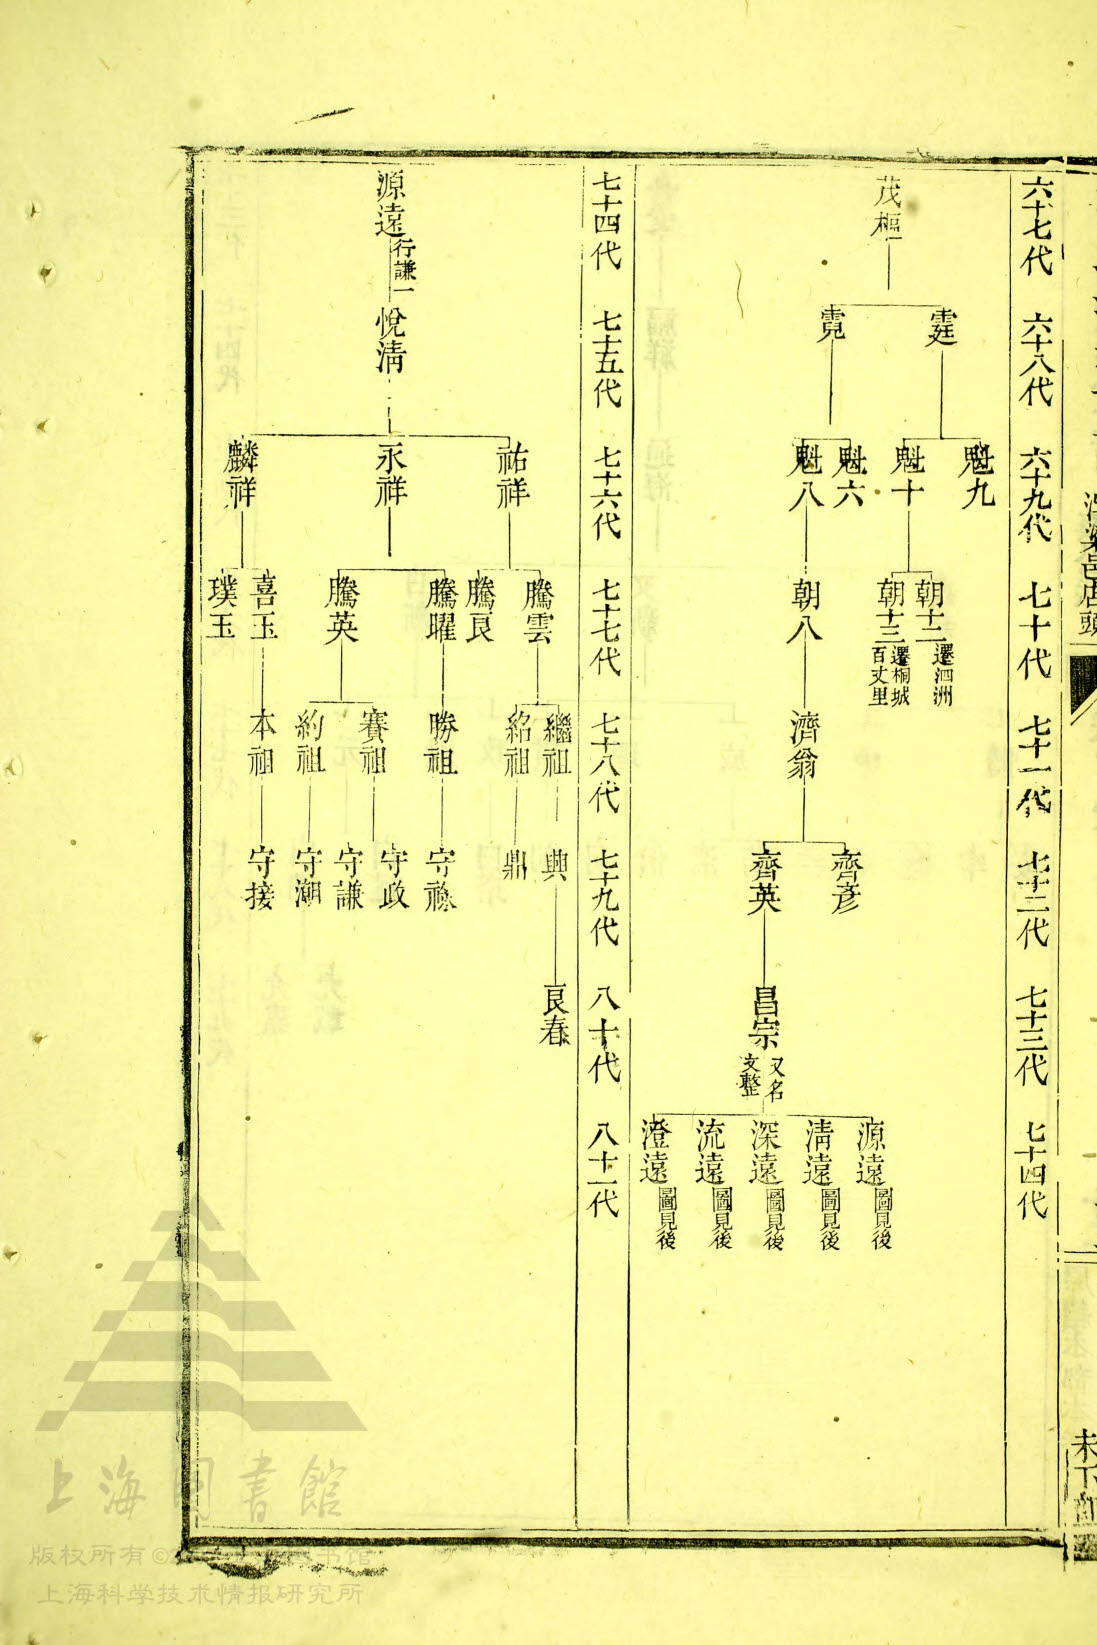 六十七代 六十八代 六十九代 七十代 七十一代 七十二代 七十三代 七十四代
茂樞
霆
霓
魁九
魁十
魁六
魁八
朝十二 遷泗洲
朝十三 遷桐城百丈里
朝八
濟翁
齊彦
齊英
昌宗 又名文整
源遠 圖見後
清遠 圖見後
深遠 圖見後
流遠 圖見後
澄遠 圖見後
七十四代 七十五代 七十六代 七十七代 七十八代 七十九代 八十代 八十一代
源遠 行謙一
悅清
祐祥
永祥
麟祥
騰雲
騰良
騰曜
騰英
喜玉
璞玉
繼祖
紹祖
勝祖
賽祖
約祖
本祖
興
鼎
守祿
守政
守謙
守潮
守接
良春
店頭
上海图書館
版权所有©2
上海科学技术情报研究所